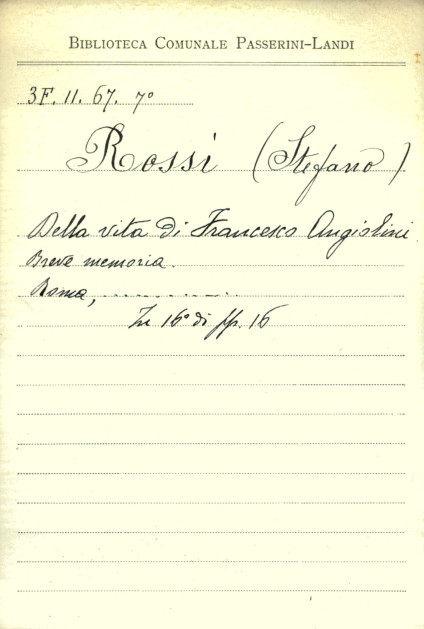 BIBLIOTECA COMUNALE PASSERINI-LANDI
3F. II. 67. 7º
Rossi (Stefano)
Della vita di Francesco Angiolini
Breve memoria.
Roma, ............
In 16º di pp. 16